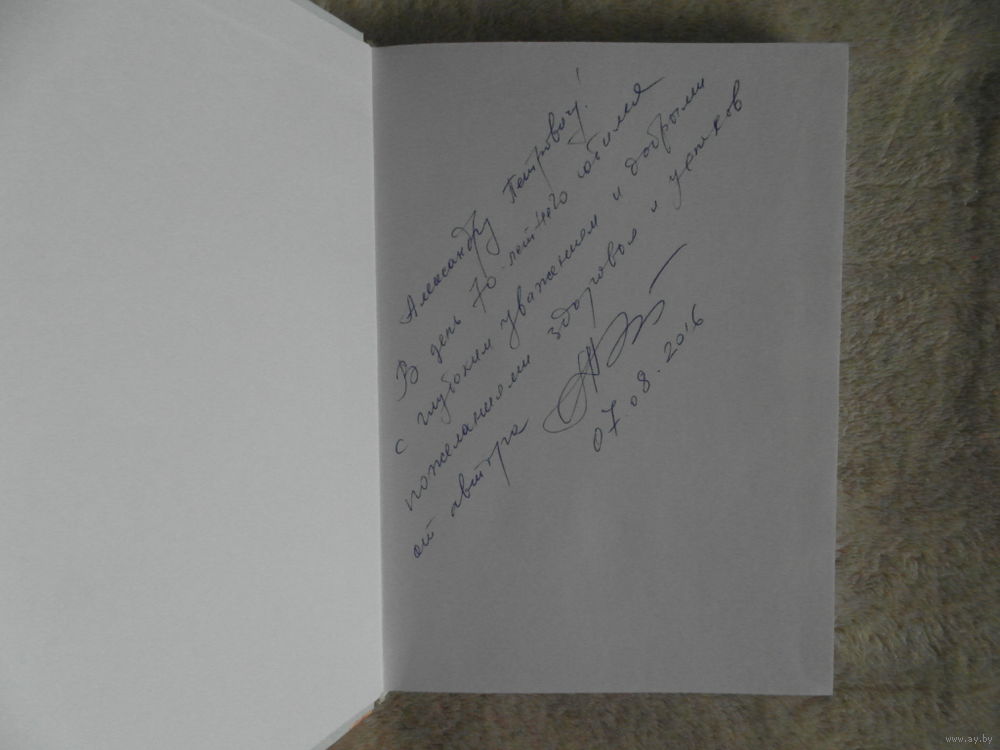 Александру Петровичу!
В день 70-летнего юбилея
с глубоким уважением и добрыми
пожеланиями здоровья и успехов
от автора
07.08.2016
www.ay.by